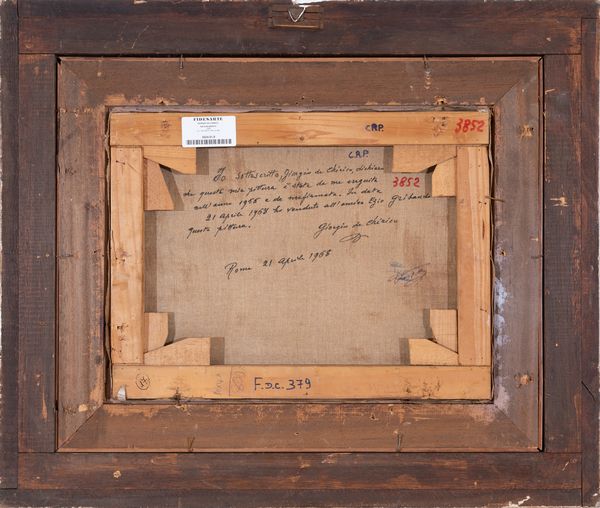 FIDESARTE
C.R.P.
3852
C.R.P.
Io sottoscritto Giorgio de Chirico, dichiaro
che questa mia pittura è stata da me eseguita
3852
nell'anno 1956 e da me firmata. In data
21 Aprile 1968 ho venduto all'amico Ezio Gribaudo
questa pittura.
Giorgio de Chirico
Roma 21 Aprile 1968
F.d.c. 379